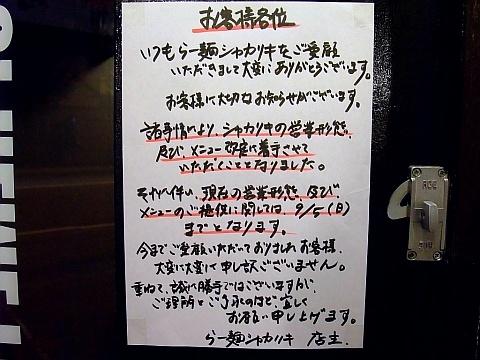 お客様各位
いつもらー麺シャカリキをご愛顧
いただきまして大変にありがとうございます。
お客様に大切なお知らせがございます。
諸事情により、シャカリキの営業形態、
及び、メニュー改定に着手させて
いただくこととなりました。
それに伴い、現在の営業形態、及び
メニューのご提供に関しては 9/5(日)
までとなります。
今までご愛顧いただいておりましたお客様、
大変に大変に申し訳ございません。
重ねて、誠に勝手ではございますが、
ご理解とご了承のほど、宜しく
お願い申し上げます。
らー麺シャカリキ 店主